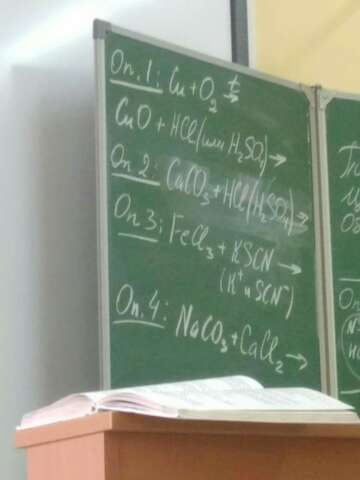 Оп. 1: Cu + O₂ t→
CuO + HCl (или H₂SO₄) →
Оп. 2: CaCO₃ + HCl (H₂SO₄) →
Оп. 3: FeCl₃ + KSCN →
(K⁺ и SCN⁻)
Оп. 4: NaCO₃ + CaCl₂ →